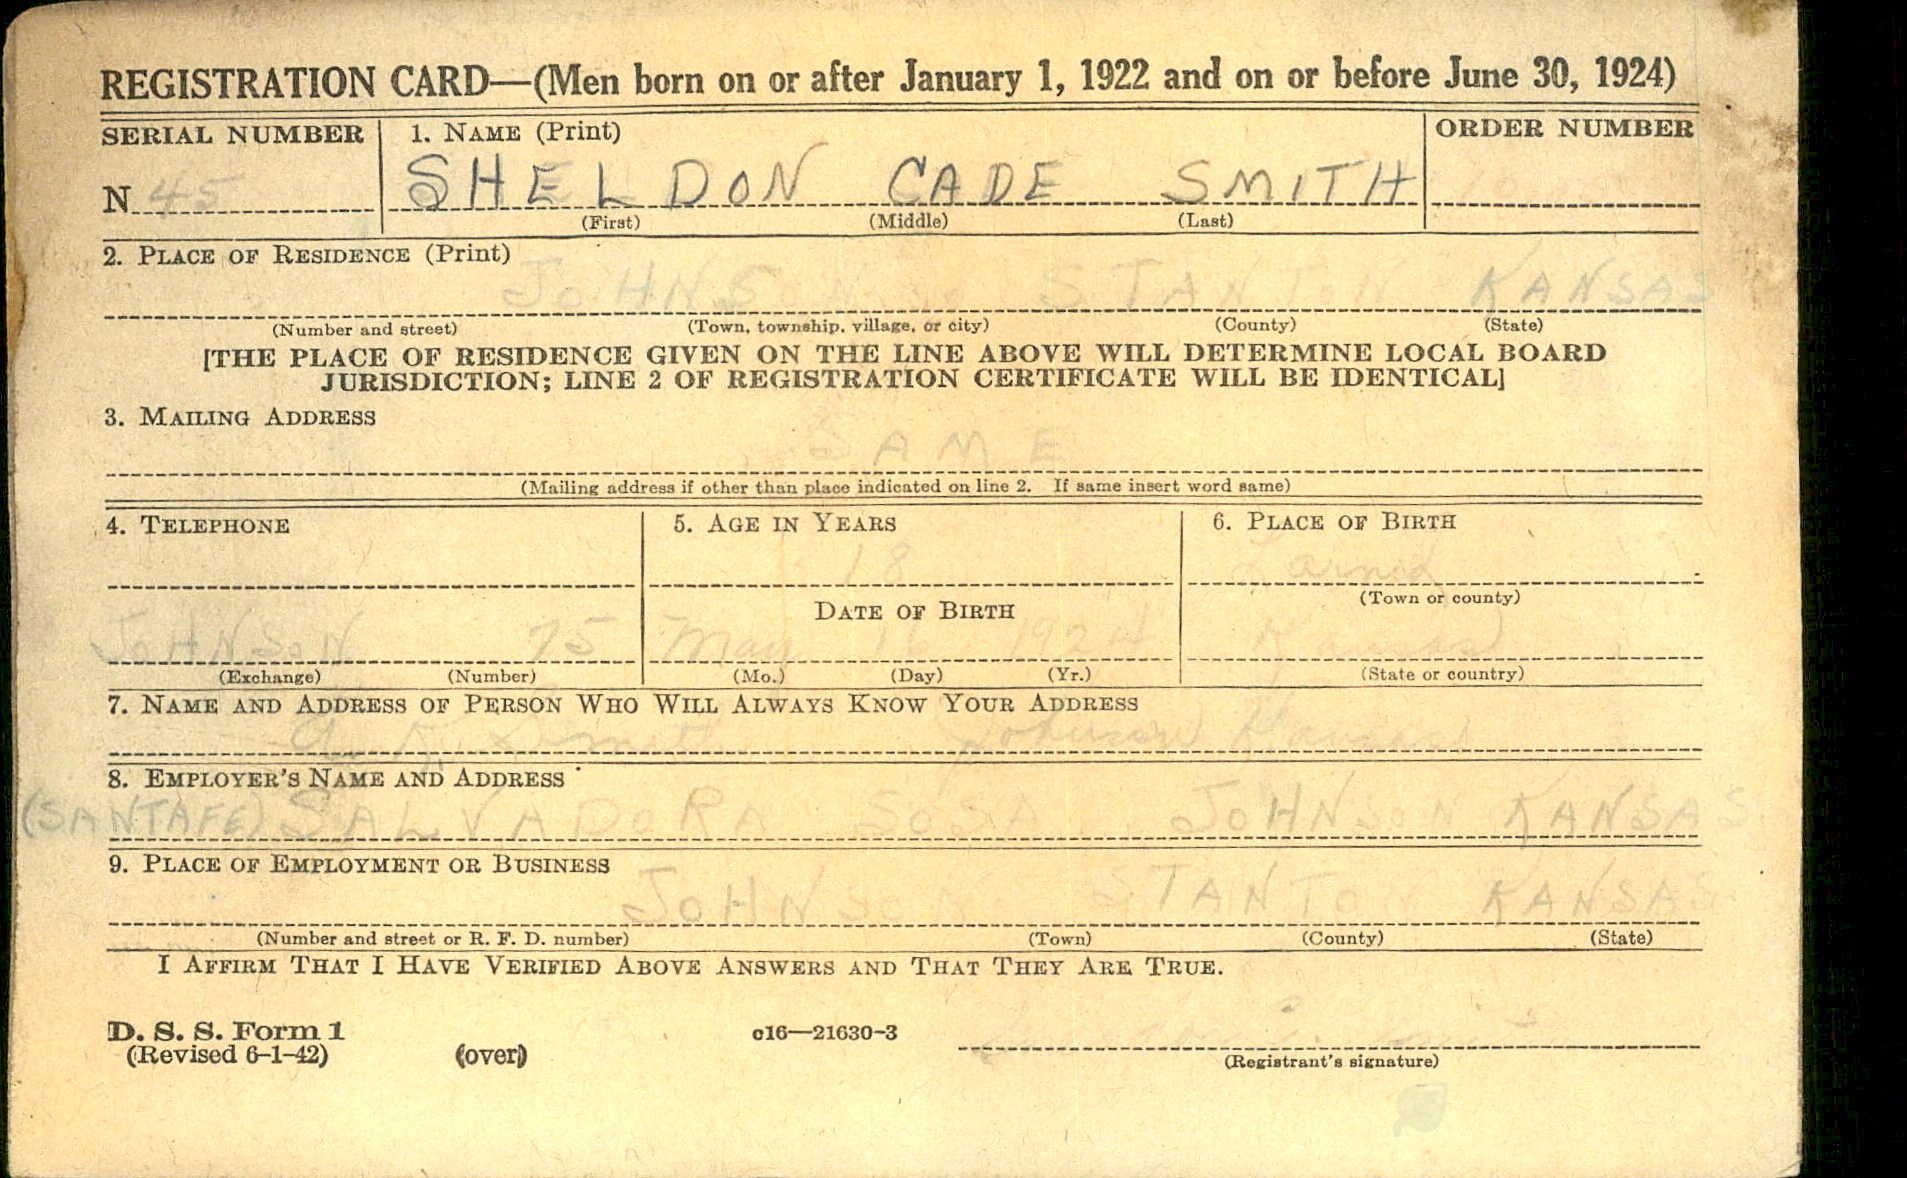 REGISTRATION CARD—(Men born on or after January 1, 1922 and on or before June 30, 1924)
SERIAL NUMBER 1. NAME (Print) ORDER NUMBER
N 45 SHELDON CADE SMITH
(First) (Middle) (Last)
2. PLACE OF RESIDENCE (Print)
JOHNSON STANTON KANSAS
(Number and street) (Town, township, village, or city) (County) (State)
[THE PLACE OF RESIDENCE GIVEN ON THE LINE ABOVE WILL DETERMINE LOCAL BOARD
JURISDICTION; LINE 2 OF REGISTRATION CERTIFICATE WILL BE IDENTICAL]
3. MAILING ADDRESS
SAME
(Mailing address if other than place indicated on line 2. If same insert word same)
4. TELEPHONE 5. AGE IN YEARS 6. PLACE OF BIRTH
18 Larned
DATE OF BIRTH (Town or county)
JOHNSON 75 May 16 1924 Kansas
(Exchange) (Number) (Mo.) (Day) (Yr.) (State or country)
7. NAME AND ADDRESS OF PERSON WHO WILL ALWAYS KNOW YOUR ADDRESS
K. Smith Johnson Kansas
8. EMPLOYER'S NAME AND ADDRESS
(SANTAFE) SALVADORA SOSA JOHNSON KANSAS
9. PLACE OF EMPLOYMENT OR BUSINESS
JOHNSON STANTON KANSAS
(Number and street or R. F. D. number) (Town) (County) (State)
I AFFIRM THAT I HAVE VERIFIED ABOVE ANSWERS AND THAT THEY ARE TRUE.
D. S. S. Form 1 c16—21630-3
(Revised 6-1-42) (over)
(Registrant's signature)